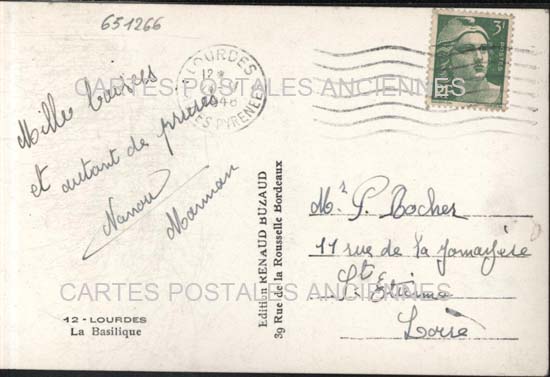 651266
LOURDES
12
1946
TES PYRENEES
3F
POSTES
CARTES POSTALES ANCIENNES
Mille baisers
et autant de prières
Nanou
Maman
Edition RENAUD BUZAUD
39 Rue de la Rousselle Bordeaux
Mr P. Rocher
11 rue de la
St. Etienne
Loire
CARTES POSTALES ANCIENNES
12 - LOURDES
La Basilique